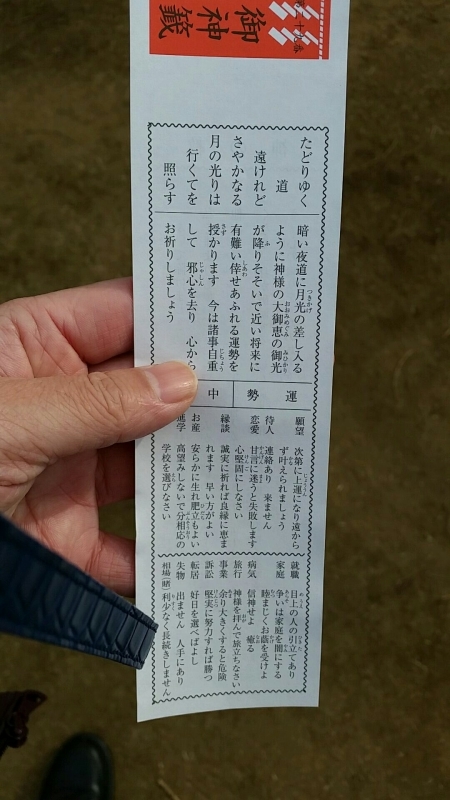 御神籤
たどりゆく
道
遠けれど
さやかなる
月の光りは
行くてを
照らす
暗い夜道に月光の差し入る
ように神様の大御恵の御光
が降りそそいで近い将来に
有難い倖せあふれる運勢を
授かります 今は諸事自重
して 邪心を去り 心から
お祈りしましょう
運勢 中
願望 次第に上運になり遠から
ず叶えられましょう
待人 連絡あり 来ません
恋愛 甘言に迷うと失敗します
心堅固にしなさい
縁談 誠実に祈れば良縁に恵ま
れます 早い方がよい
お産 安らかに生れ肥立もよい
進学 高望みしないで分相応の
学校を選びなさい
就職 目上の人の引立てあり
家庭 争いは家庭を闇にする
睦まじくお蔭を受けよ
病気 信神せよ 癒る
旅行 神様を拝んで旅立ちなさい
事業 余り大きくすると危険
訴訟 堅実に努力すれば勝つ
転居 好日を選べばよし
失物 出ません 人手にあり
相場(賭) 利少なく長続きしません